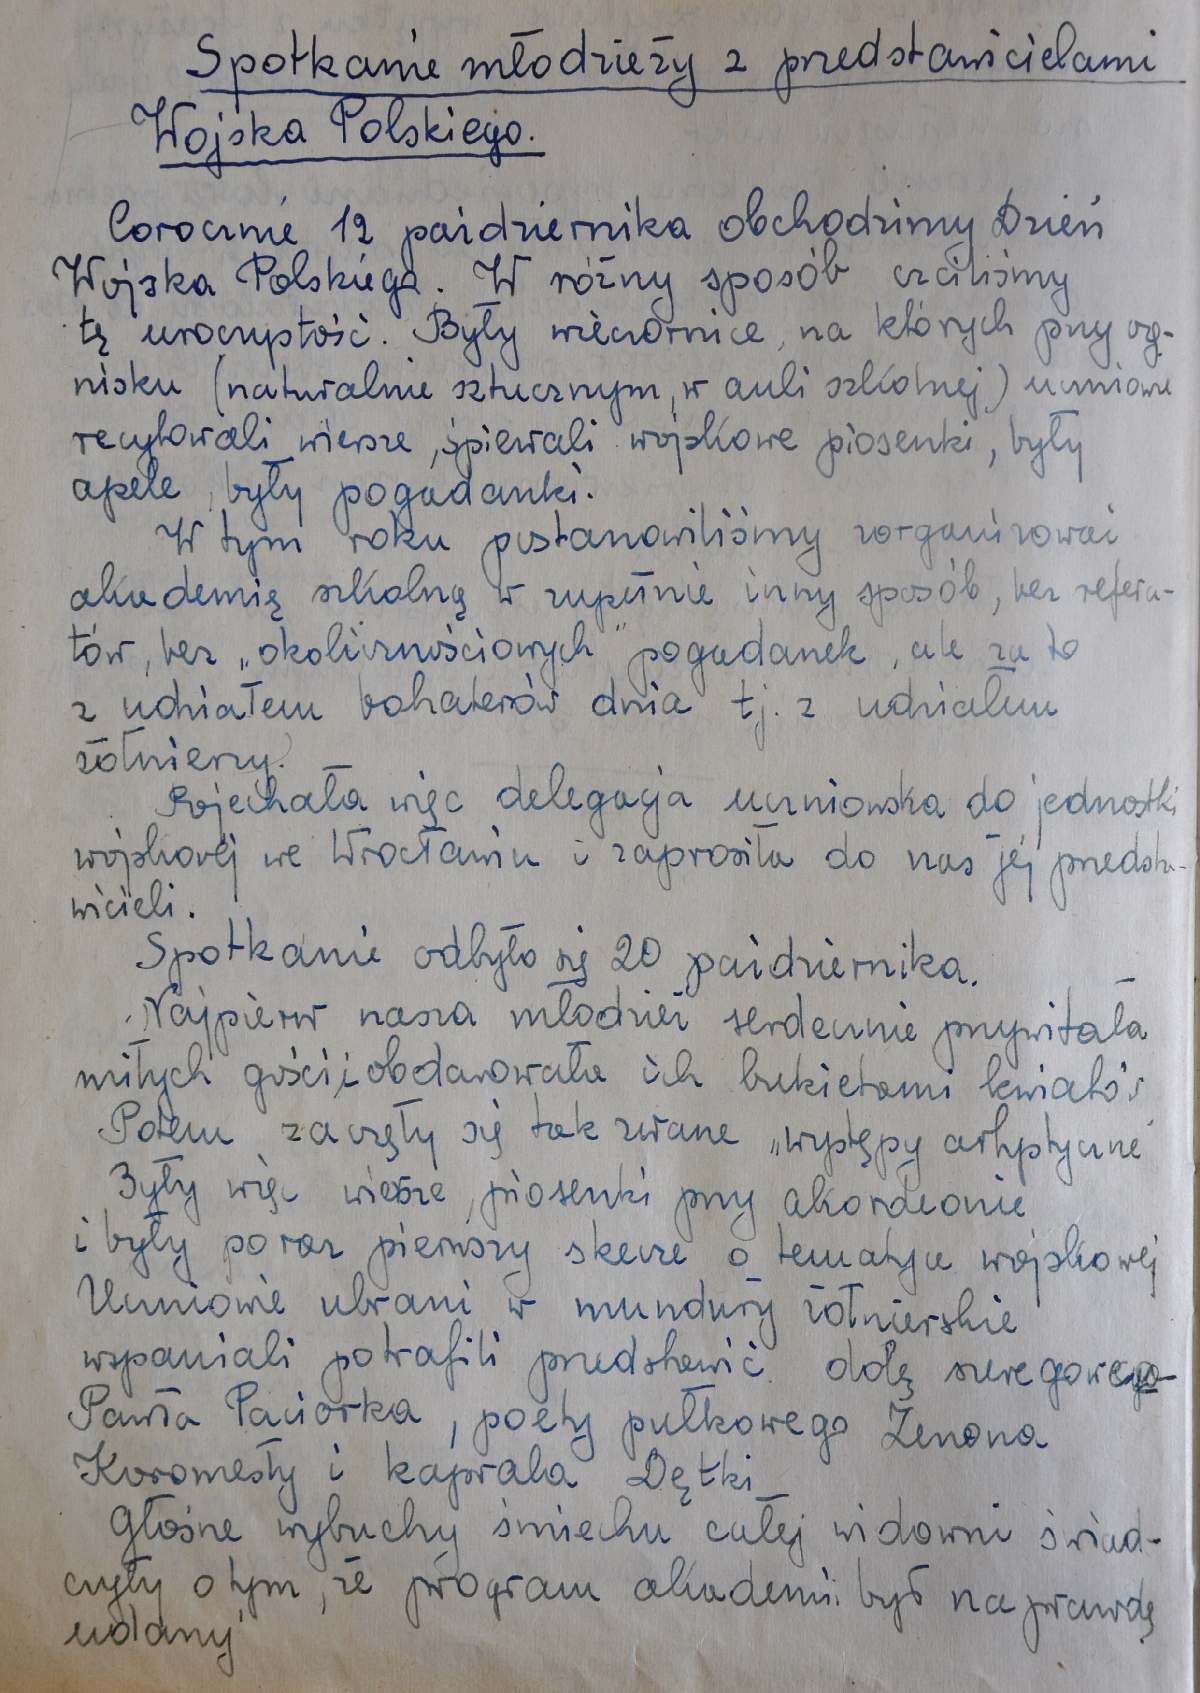 Spotkanie młodzieży z przedstawicielami
Wojska Polskiego.
Corocznie 12 października obchodzimy Dzień
Wojska Polskiego. W różny sposób czciliśmy
tę uroczystość. Były wieczornice, na których przy og-
nisku (naturalnie sztucznym, w auli szkolnej) uczniowie
recytowali wiersze, śpiewali wojskowe piosenki, były
apele, były pogadanki.
W tym roku postanowiliśmy zorganizować
akademię szkolną w zupełnie inny sposób, bez refera-
tów, bez „okolicznościowych" pogadanek, ale za to
z udziałem bohaterów dnia tj. z udziałem
żołnierzy.
Pojechała więc delegacja uczniowska do jednostki
wojskowej we Wrocławiu i zaprosiła do nas jej przedsta-
wicieli.
Spotkanie odbyło się 20 października.
Najpierw nasza młodzież serdecznie przywitała
miłych gości i obdarowała ich bukietami kwiatów
Potem zaczęły się tak zwane „występy artystyczne"
Były więc wiersze, piosenki przy akordeonie
i były poraz pierwszy skecze o tematyce wojskowej
Uczniowie ubrani w mundury żołnierskie
wspaniali potrafili przedstawić dolę szeregowego
Pawła Paciorka, poety pułkowego Zenona
Koromesły i kaprala Dętki
Głośne wybuchy śmiechu całej widowni świad-
czyły o tym, że program akademii był naprawdę
udany